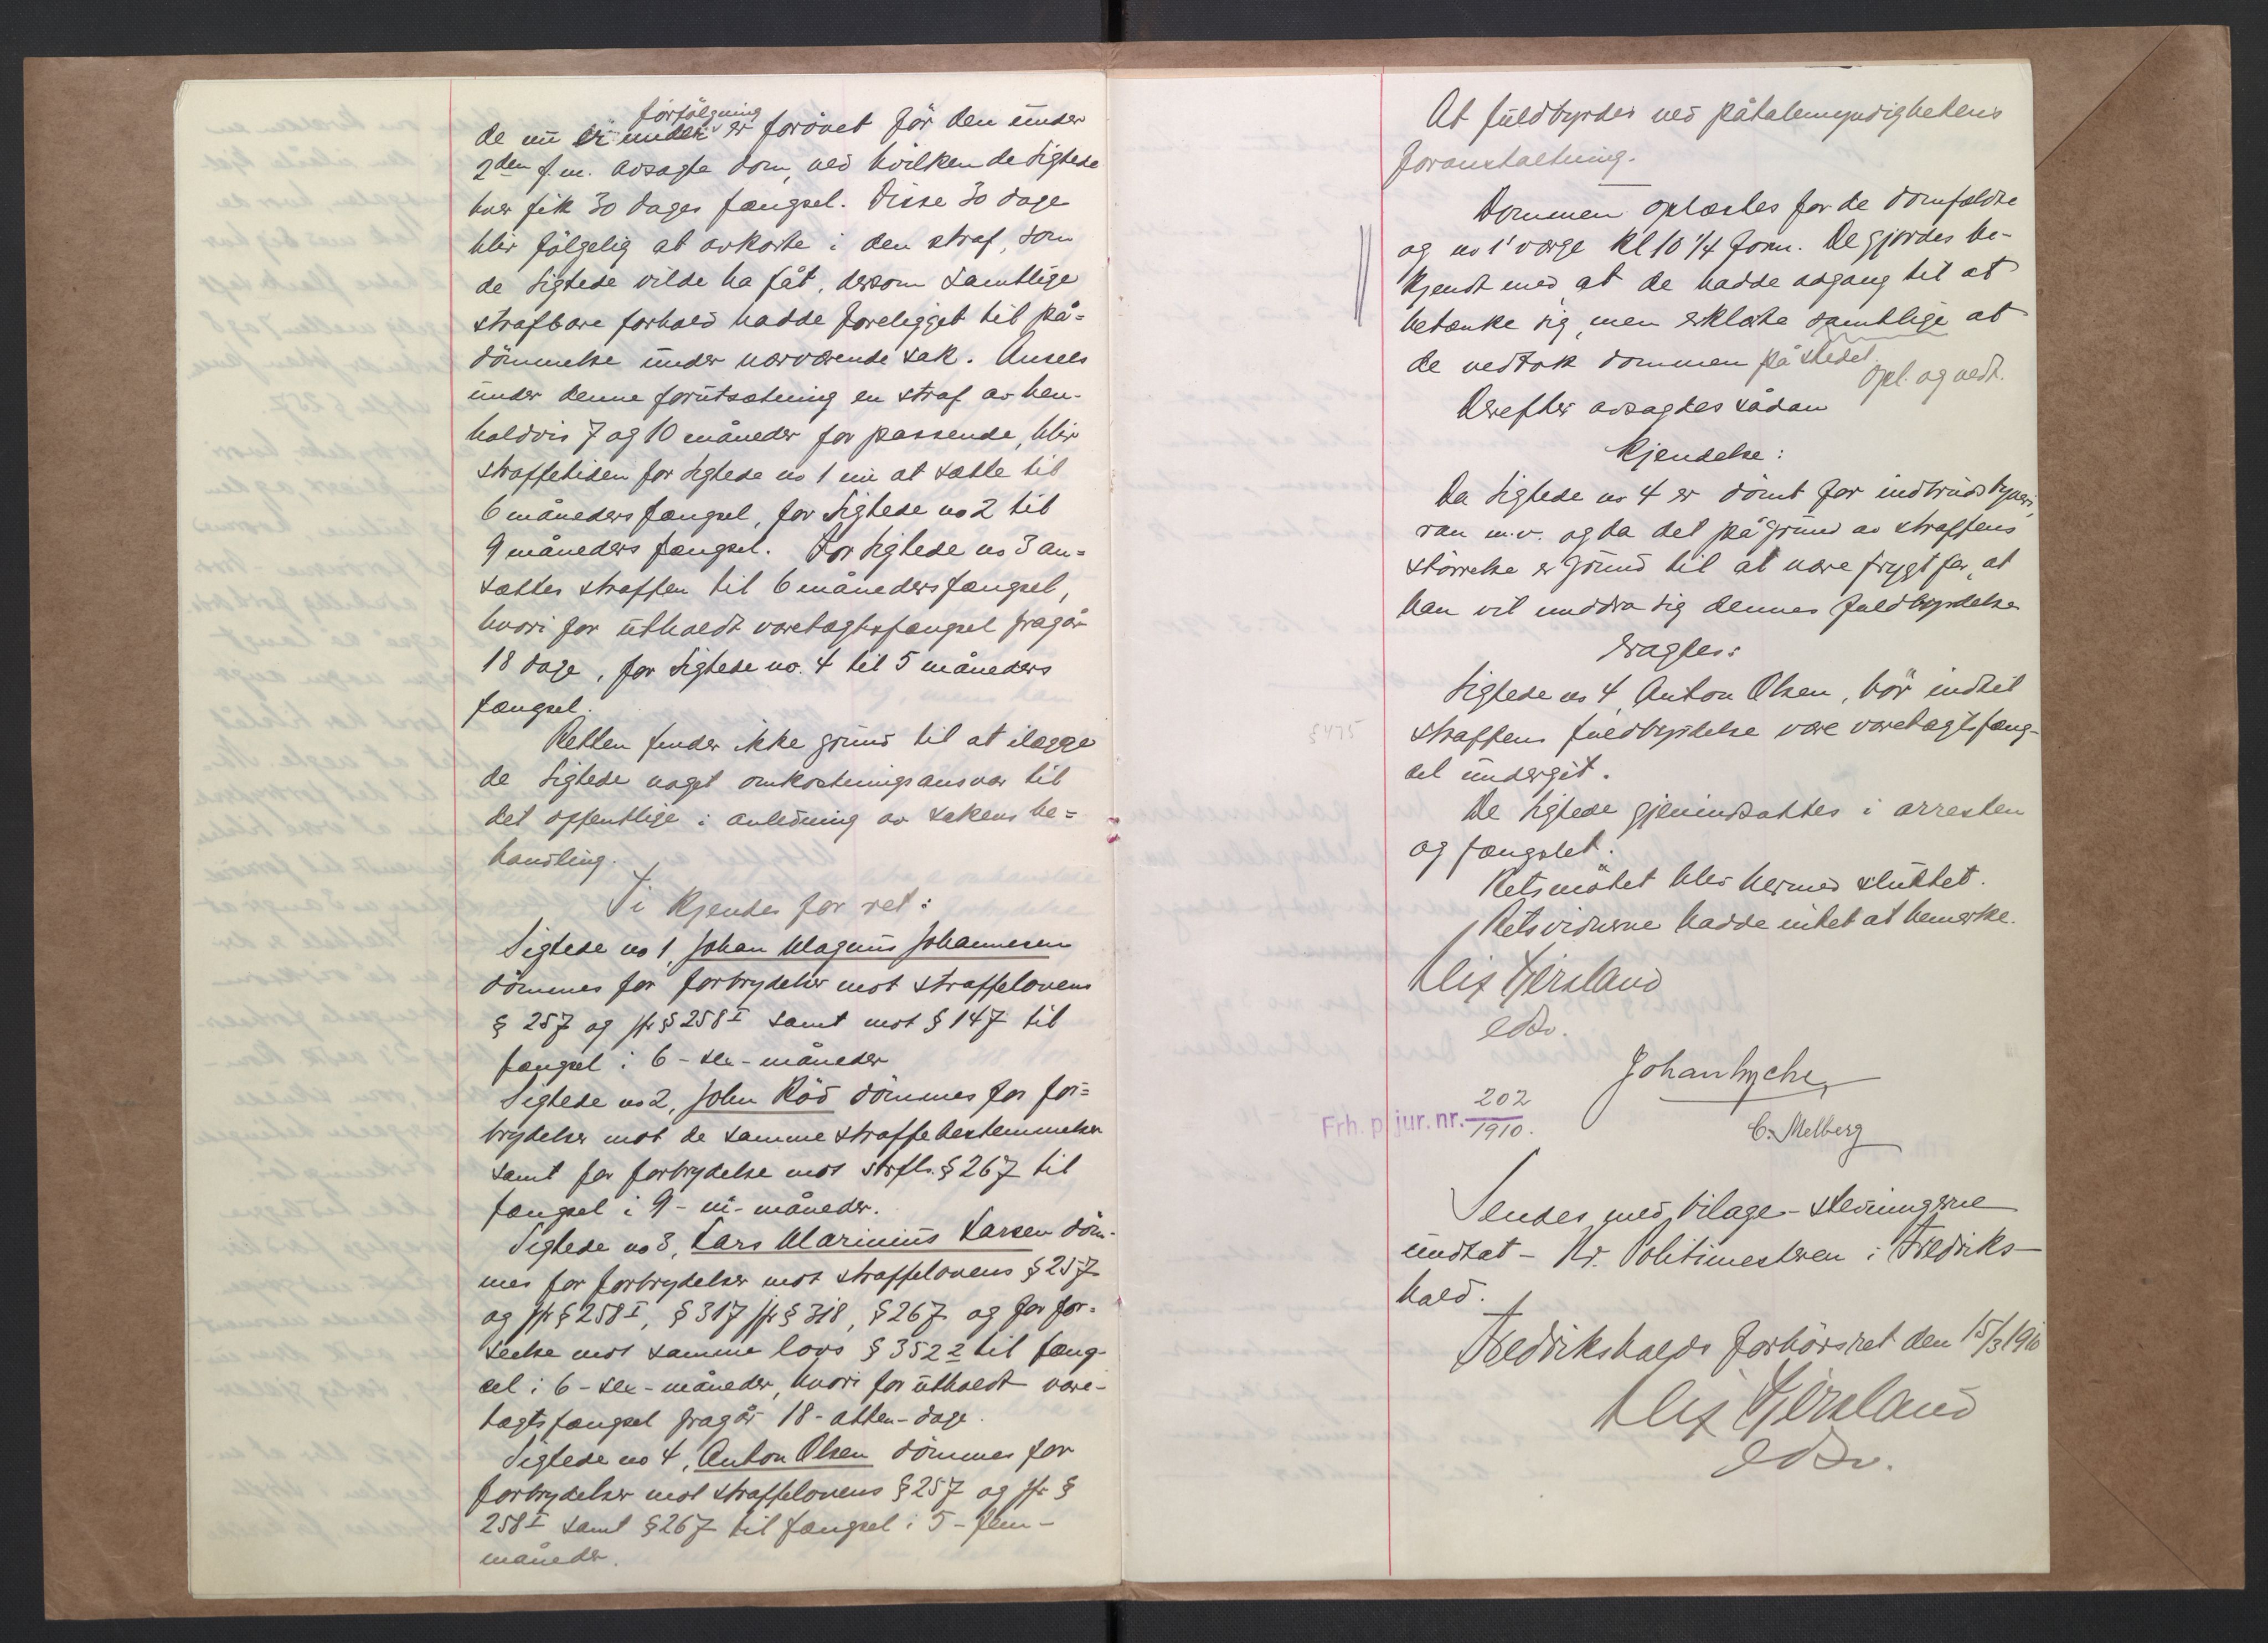 forfölgning
de nu er under er forövet för den under
2den f.m. avsagte dom, ved hvilken de sigtede
hver fik 30 dages fængsel. Disse 30 dage
blir fölgelig at avkorte i den straf, som
de sigtede vilde ha fåt, dersom samtlige
strafbare forhold hadde foreligget til på=
dömmelse under nærværende sak. Ansees
under denne forutsætning en straf av hen-
holdsvis 7 og 10 måneder for passende, blir
straffetiden for sigtede no 1 nu at sætte til
6 måneders fængsel, for sigtede no 2 til
9 måneders fængsel. For sigtede no 3 an=
sættes straffen til 6 måneders fængsel,
hvori for utholdt varetægtsfængsel fragår
18 dage, for sigtede no. 4 til 5 måneders
fængsel.
Retten finder ikke grund til at ilægge
de sigtede noget omkostningsansvar til
det offentlige i anledning av sakens be=
handling.
Ti kjendes for ret:
Sigtede no 1, Johan Magnus Johannesen
dömmes for forbrydelser mot straffelovens
§ 257 og jfr § 258 I samt mot § 147 til
fængsel i 6 - sex - måneder
Sigtede no 2, John Röd dömmes for for=
brydelser mot de samme straffebestemmelser
samt for forbrydelse mot strfls. § 267 til
fængsel i 9 - ni - måneder.
Sigtede no 3, Lars Marinius Larsen döm-
mes for forbrydelser mot straffelovens § 257
og jfr § 258 I, § 317 jfr § 318, § 267 og for for=
seelse mot samme lovs § 352 2 til fæng-
sel i 6 - sex - måneder, hvori for utholdt vare-
tægtsfængsel fragår 18 - atten - dage.
Sigtede no 4, Anton Olsen dömmes for
forbrydelser mot straffelovens § 257 og jfr §
258 I samt § 267 til fængsel i 5 - fem -
måneder.
At fuldbyrdes ved påtalemyndighetens
foranstaltning.
Dommen oplæstes for de domfældte
og no 1's værge kl 10 1/4 form. De gjordes be-
kjendt med at de hadde adgang til at
betænke sig, men erklærte samtlige at
de vedtok dommen på stedet.
Opl. og vedt.
Derefter avsagdes sådan
Kjendelse:
Da sigtede no 4 er dömt for indbrudstyveri,
ran m.v. og da det på grund av straffens
störrelse er grund til at nære frygt for, at
han vil unddra sig dennes fuldbyrdelse
eragtes:
Sigtede no 4, Anton Olsen, bör indtil
§ 475
straffens fuldbyrdelse være varetægtsfæng-
sel undergit.
De sigtede gjenindsattes i arresten
og fængslet.
Retsmötet blev hermed sluttet.
Retsvidnerne hadde intet at bemerke.
Alex Gjersland
edsv.
Johan Lyche
Frh. p. jur. nr. 202
1910.
C. Melberg
Sendes med bilage - stevningerne
undtat - Hr. Politimesteren i Fredriks-
hald.
Fredrikshalds forhörsret den 15/3 1910
Alex Gjersland
edsv.